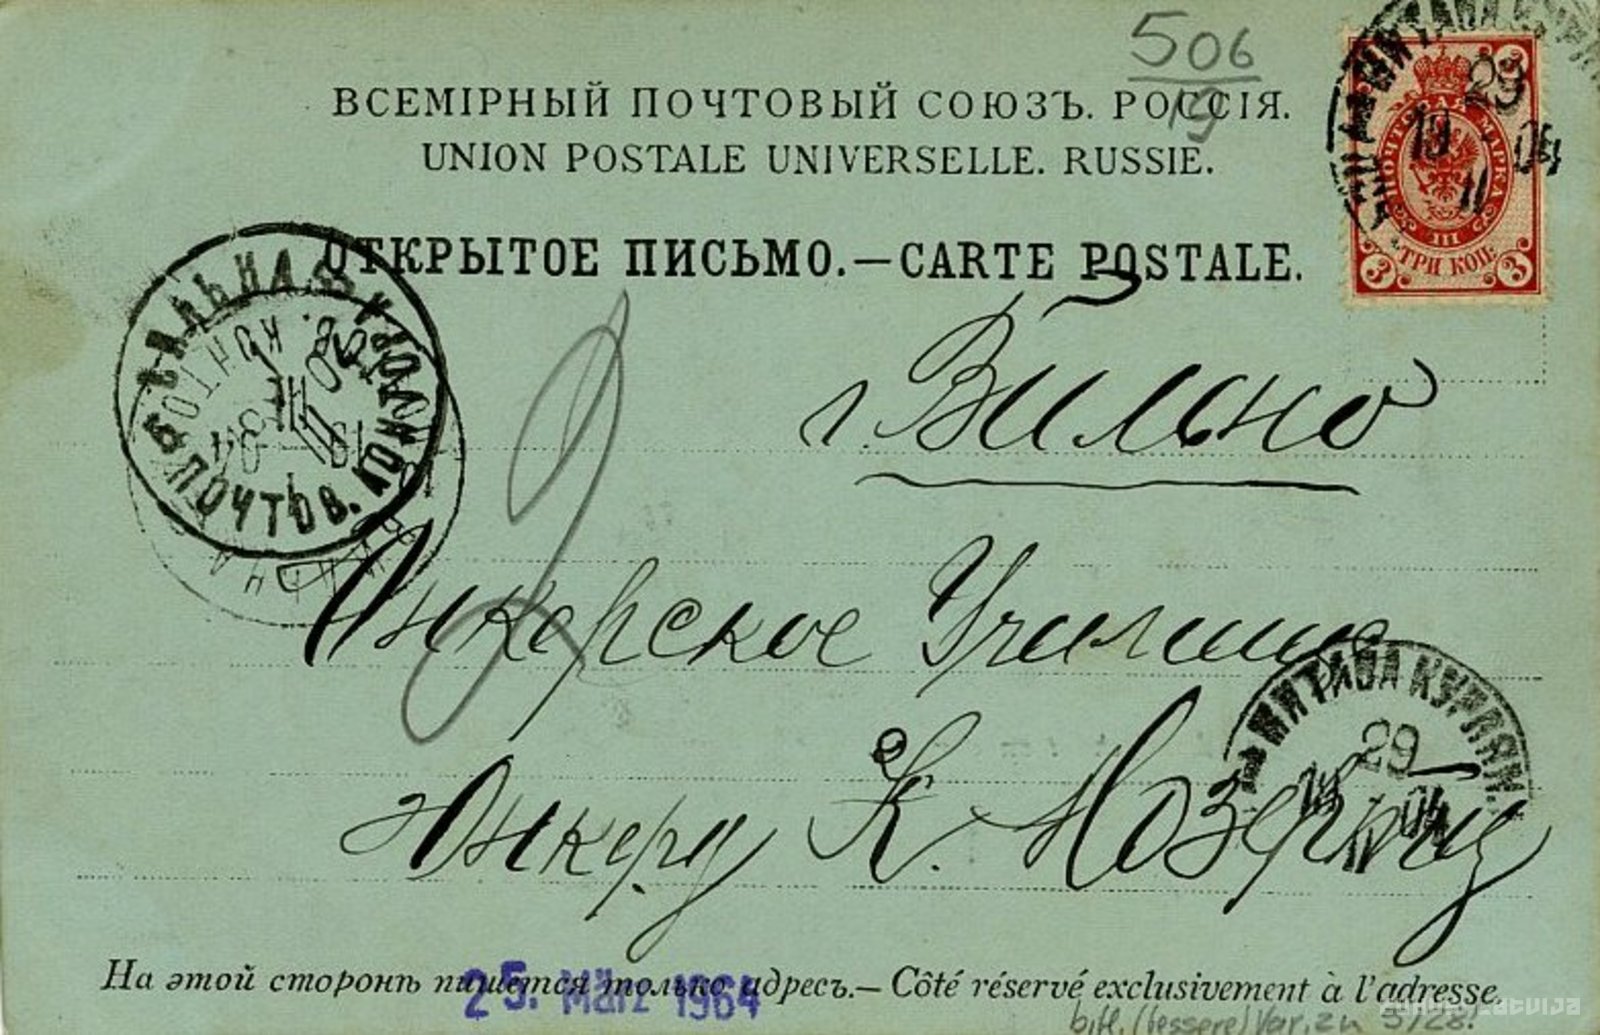 506
19
ВСЕМІРНЫЙ ПОЧТОВЫЙ СОЮЗЪ. РОССІЯ.
UNION POSTALE UNIVERSELLE. RUSSIE.
ОТКРЫТОЕ ПИСЬМО.—CARTE POSTALE.
МИТАВА КУРЛЯН.
29
19 04
11
ПОЧТОВАЯ МАРКА
III
3 ТРИ КОП. 3
г. Вильно
ПОЧТОВ.
Юнкерское Училище
МИТАВА КУРЛЯН.
29
04
Юнкеру К.
На этой сторонѣ пишется только адресъ.— Côté réservé exclusivement à l'adresse.
25. März 1964